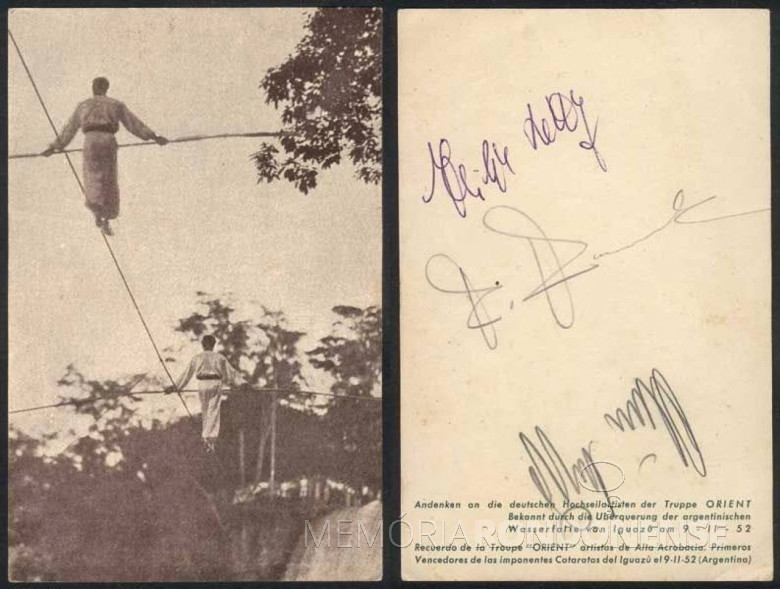 Andenken an die deutschen Hochseilartisten der Truppe ORIENT
Bekannt durch die Uberquerung der argentinischen
Wasserfalle von Iguazú am 9 - II - 52
Recuerdo de la Troupe "ORIENT" artistas de Alta Acrobacia. Primeros
Vencedores de las imponentes Cataratas del Iguazú el 9-II-52 (Argentina)
MEMÓRIA RONDONENSE